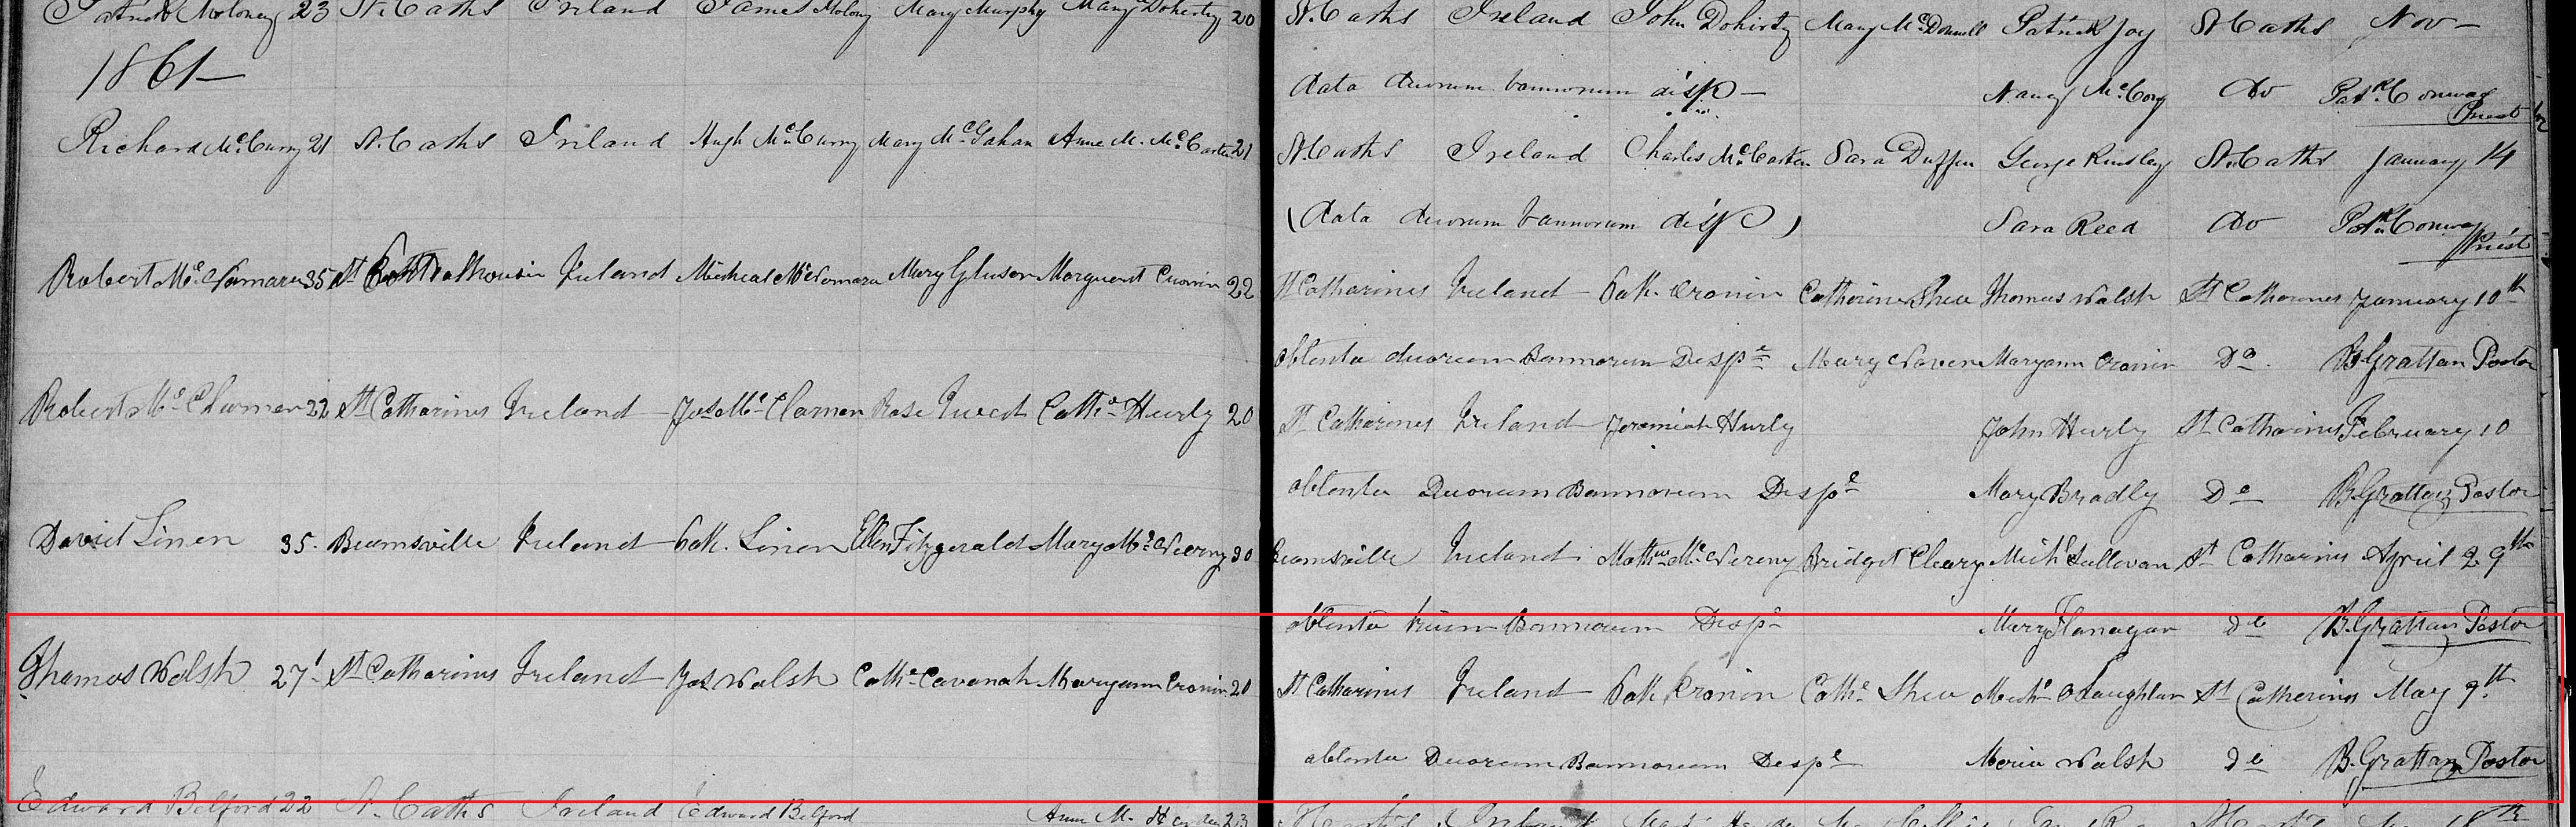 Patrick Moloney 23 St. Caths Ireland James Molony Mary Murphy Mary Doherty 20 St. Caths Ireland John Dohirty Mary McDonnell Patrick Joy St Caths Nov —
1861 —
data duorum bannorum disp — Nancy McCory Do Patk Conway Priest
Richard McCurry 21 St. Caths Ireland Hugh McCurry Mary McGahan Anne M. McCarten 21 St. Caths Ireland Charles McCarten Sara Duffin George Kinsley St. Caths January 14
(data duorum bannorum disp) Sara Reed Do Patk Conway Priest
Robert McNamara 35 St Ireland Micheal McNamara Mary Gluson Morguerit Cronin 22 St Catharines Ireland Patk. Cronin Catherine Shea Thomas Walsh St Catharines January 10th
obtenta duorum Bannorum Dispe Mary Maryann Cronin Do. B Grattan Pastor
Robert 22 St Catharines Ireland Jas Rose Cathe Hurly 20 St Catharines Ireland Jeremiah Hurly John Hurly St Catharines February 10
obtenta Duorum Bannorum Dispe Mary Bradly De B Grattan Pastor
David Linen 35. Beamsville Ireland Patk. Linen Ellen Fitzgerald Mary McNerny 30 Beamsville Ireland Mathw McNereny Bridget Cleary Michl Sullovan St Catharines April 29th
obtenta trium Bannorum Dispe Mary Flanagan de B. Grattan Pastor
Thomas Walsh 27 St Catharines Ireland Jas Walsh Cathe Cavanah Maryann Cronin 20 St Catharines Ireland Patk Cronin Cathe Shea Miche OLaughlan St Catherines May 9th
obtenta Duorum Bannorum Dispe Moria Walsh de B. Grattan Pastor
Edward Belford 22 St. Caths Ireland Edward Belford Anne M. 23 Ireland